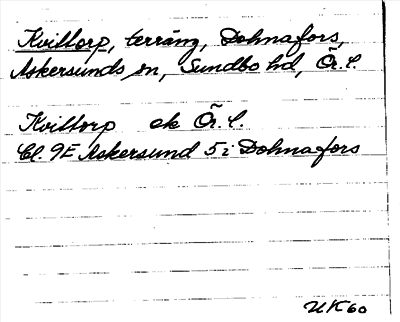 Kvilltorp, terräng, Dohnafors,
Askersunds sn, Sundbo hd, Ör. l.
Kvilltorp ek Ör. l.
Bl. 9F Askersund 5i Dohnafors
UK60